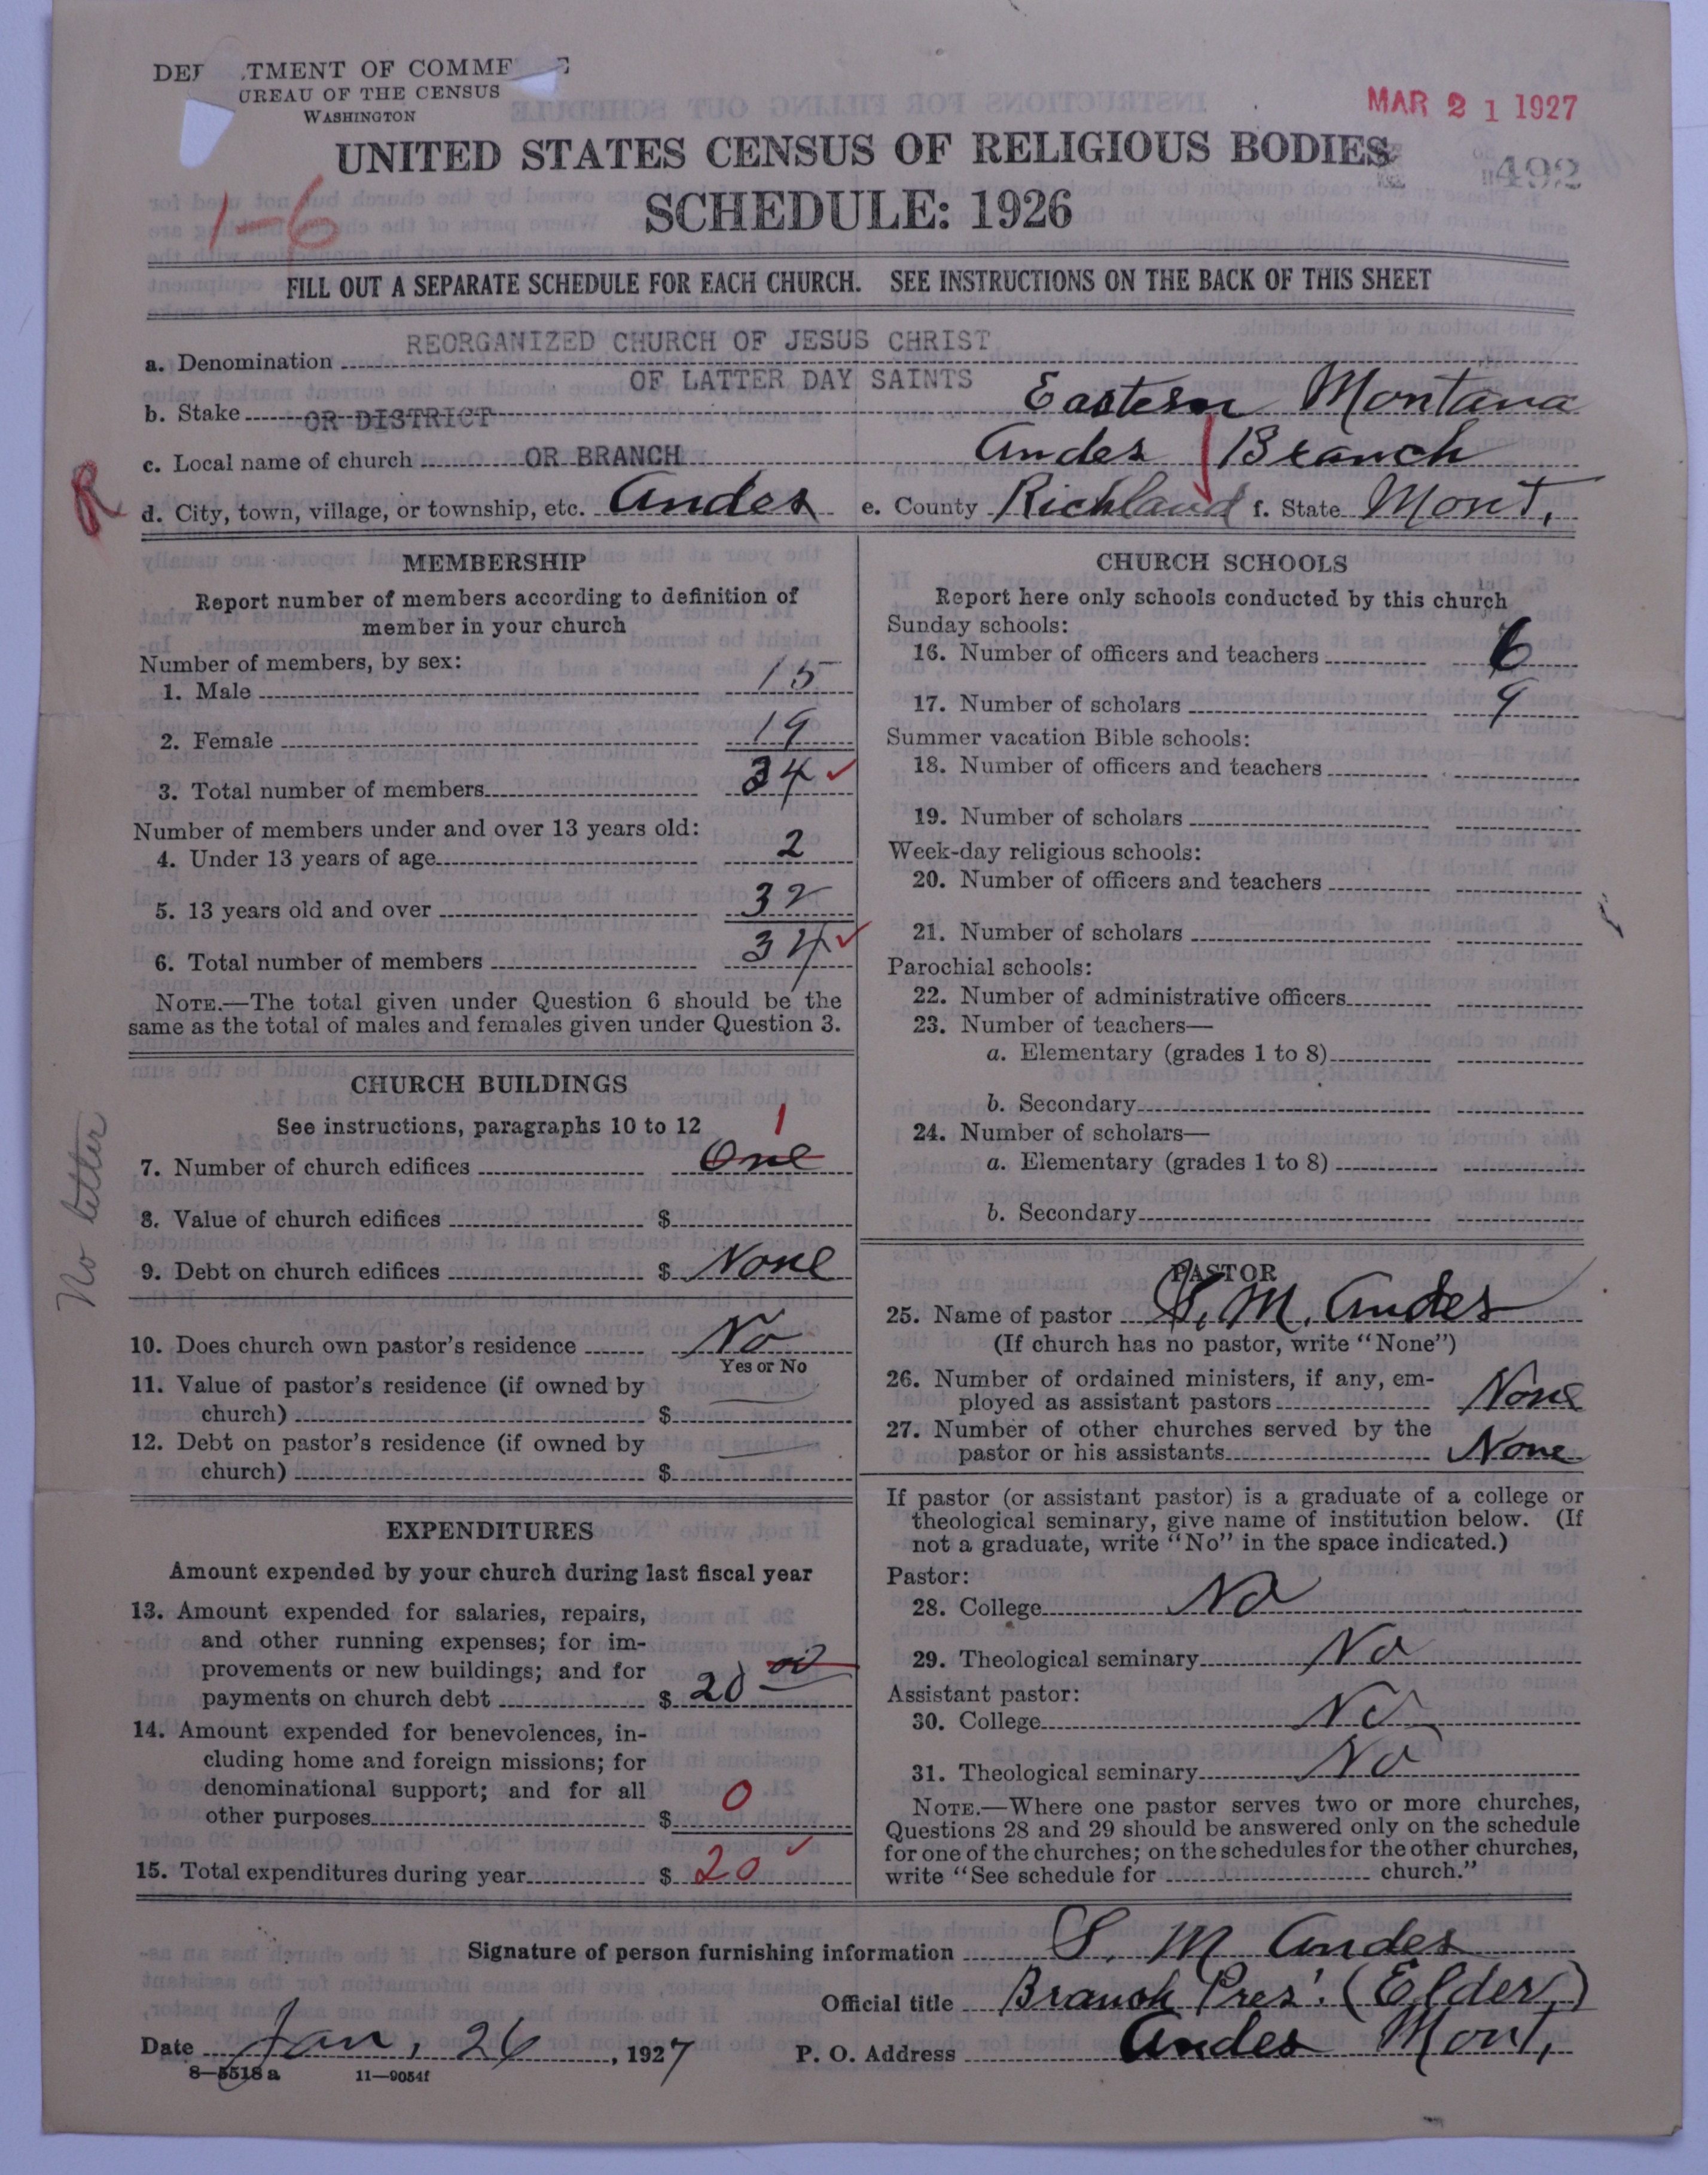 DEP TMENT OF COMME E
UREAU OF THE CENSUS
WASHINGTON
MAR 21 1927
UNITED STATES CENSUS OF RELIGIOUS BODIES
492
SCHEDULE: 1926
1-6
FILL OUT A SEPARATE SCHEDULE FOR EACH CHURCH. SEE INSTRUCTIONS ON THE BACK OF THIS SHEET
REORGANIZED CHURCH OF JESUS CHRIST
a. Denomination
OF LATTER DAY SAINTS
b. Stake OR DISTRICT Eastern Montana
c. Local name of church OR BRANCH Andes Branch
R
d. City, town, village, or township, etc. Andes e. County Richland f. State Mont,
MEMBERSHIP
Report number of members according to definition of
member in your church
Number of members, by sex:
1. Male 15
2. Female 19
3. Total number of members 34 ✓
Number of members under and over 13 years old:
4. Under 13 years of age 2
5. 13 years old and over 32
6. Total number of members 34 ✓
NOTE.—The total given under Question 6 should be the
same as the total of males and females given under Question 3.
CHURCH BUILDINGS
See instructions, paragraphs 10 to 12
1
7. Number of church edifices One
8. Value of church edifices $
9. Debt on church edifices $ None
No letter
10. Does church own pastor's residence No
Yes or No
11. Value of pastor's residence (if owned by
church) $
12. Debt on pastor's residence (if owned by
church) $
EXPENDITURES
Amount expended by your church during last fiscal year
13. Amount expended for salaries, repairs,
and other running expenses; for im-
provements or new buildings; and for
payments on church debt $ 20 00
14. Amount expended for benevolences, in-
cluding home and foreign missions; for
denominational support; and for all
other purposes $ 0
15. Total expenditures during year $ 20 ✓
CHURCH SCHOOLS
Report here only schools conducted by this church
Sunday schools:
16. Number of officers and teachers 6
17. Number of scholars 9
Summer vacation Bible schools:
18. Number of officers and teachers
19. Number of scholars
Week-day religious schools:
20. Number of officers and teachers
21. Number of scholars
Parochial schools:
22. Number of administrative officers
23. Number of teachers—
a. Elementary (grades 1 to 8)
b. Secondary
24. Number of scholars—
a. Elementary (grades 1 to 8)
b. Secondary
PASTOR
25. Name of pastor S. M. Andes
(If church has no pastor, write "None")
26. Number of ordained ministers, if any, em-
ployed as assistant pastors None
27. Number of other churches served by the
pastor or his assistants None
If pastor (or assistant pastor) is a graduate of a college or
theological seminary, give name of institution below. (If
not a graduate, write "No" in the space indicated.)
Pastor:
28. College No
29. Theological seminary No
Assistant pastor:
30. College No
31. Theological seminary No
NOTE.—Where one pastor serves two or more churches,
Questions 28 and 29 should be answered only on the schedule
for one of the churches; on the schedules for the other churches,
write "See schedule for church."
Signature of person furnishing information S. M Andes
Official title Branch Pres'. (Elder)
Date Jan, 26, 1927 P. O. Address Andes Mont,
8—5518 a 11—9054f